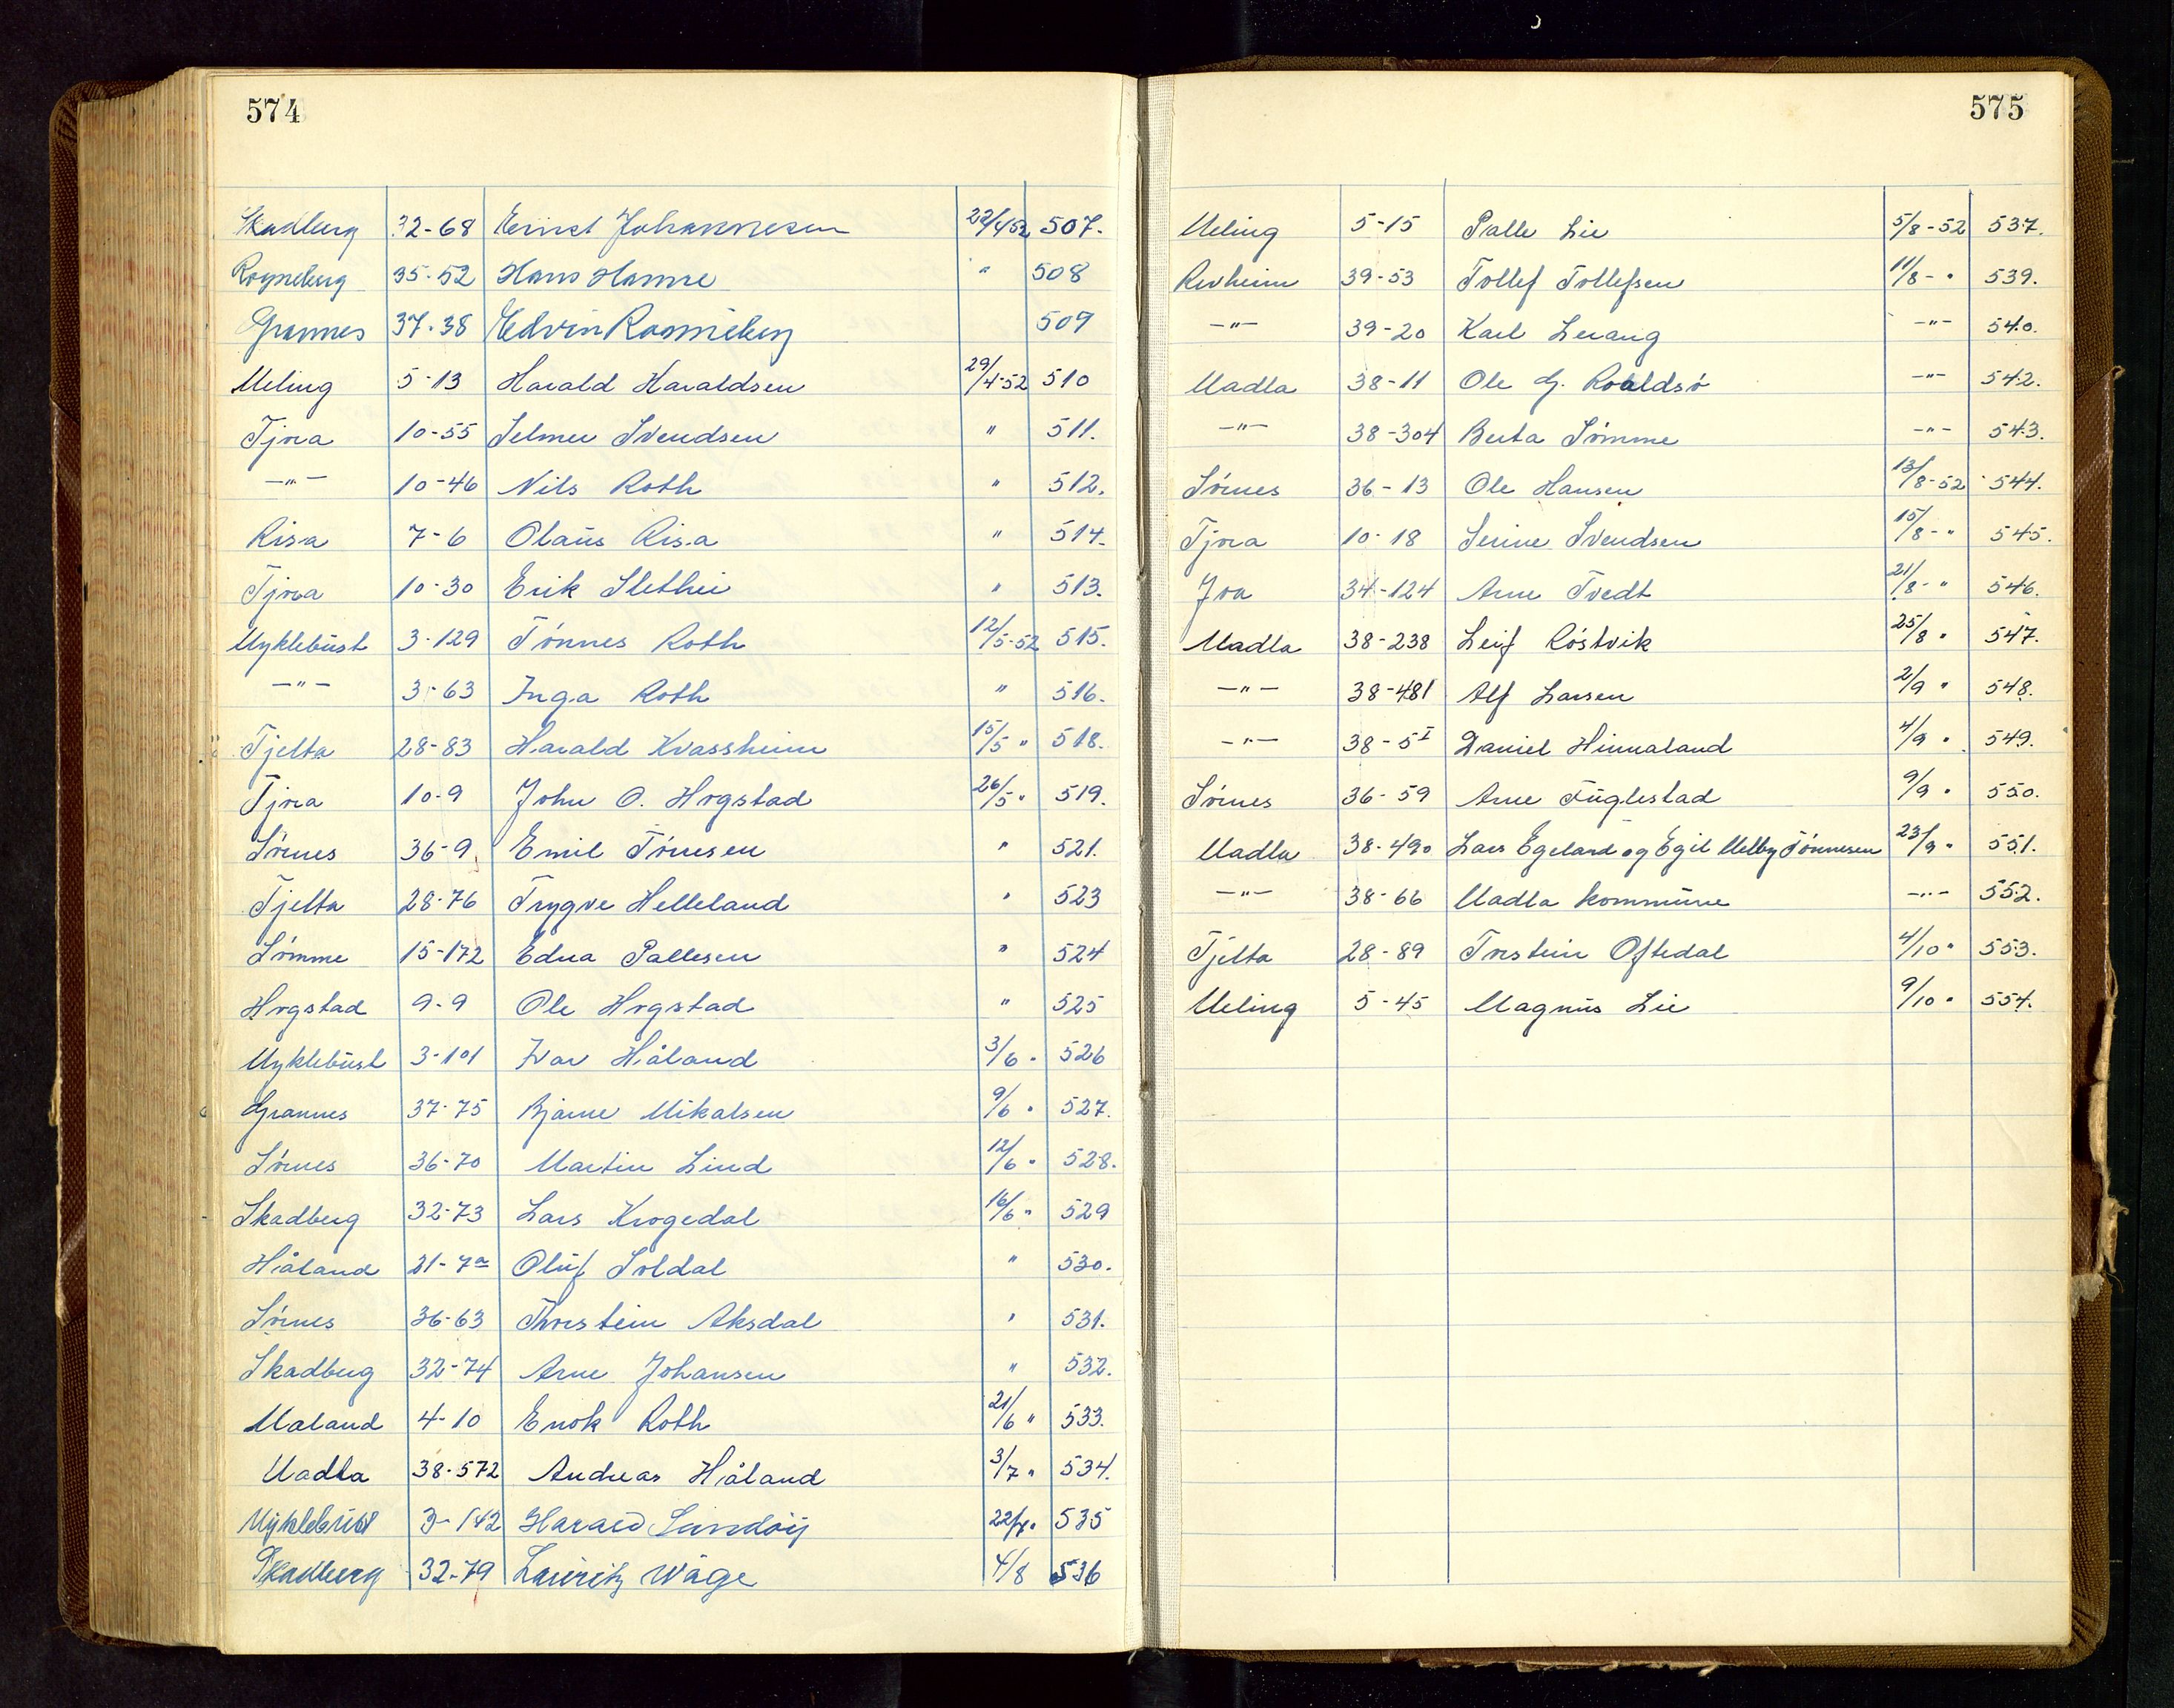 574
Skadberg 32-68 Ernst Johannesen 22/4 52 507.
Røyneberg 35-52 Hans Hamre " 508
Grannes 37-38 Edvin Røyneberg 509
Meling 5-13 Harald Haraldsen 29/4-52 510
Tjora 10-55 Selmer Svendsen " 511.
—"— 10-46 Nils Roth " 512.
Risa 7-6 Olaus Risa " 514.
Tjora 10-30 Erik Slethei " 513.
Myklebust 3-129 Tønnes Roth 12/5-52 515.
—"— 3-63 Inga Roth " 516.
Tjelta 28-83 Harald Kvassheim 15/5 " 518.
Tjora 10-9 John O. Hogstad 26/5 " 519.
Sømes 36-9 Emil Tønnesen " 521.
Tjelta 28-76 Trygve Helleland " 523
Sømme 15-172 Edna Pallesen " 524
Hogstad 9-9 Ole Hogstad " 525
Myklebust 3-101 Ivar Håland 3/6 " 526
Grannes 37-75 Bjarne Mikalsen 9/6 " 527.
Sømes 36-70 Martin Lind 12/6 " 528.
Skadberg 32-73 Lars Krogedal 16/6 " 529
Håland 21-7a Oluf Soldal " 530.
Sømes 36-63 Thorstein Aksdal " 531.
Skadberg 32-74 Arne Johansen " 532.
Maland 4-10 Enok Roth 21/6 " 533.
Madla 38-572 Andreas Håland 3/7 " 534.
Myklebust 3-142 Harald 22/7 " 535
Skadberg 32-79 Lauritz Våge 4/8 536
575
Meling 5-15 Palle Lie 5/8-52 537.
Revheim 39-53 Tollef Tollefsen 11/8-" 539.
—"— 39-20 Karl Lerang —"— 540.
Madla 38-11 Ole G. Roaldsø —"— 542.
—"— 38-304 Berta Sømme —"— 543.
Sømes 36-13 Ole Hansen 13/8-52 544.
Tjora 10-18 Serine Svendsen 15/8-" 545.
Joa 34-124 Arne Tvedt 21/8-" 546.
Madla 38-238 Leif Røstvik 25/8 " 547.
—"— 38-481 Alf Larsen 2/9 " 548.
—"— 38-5I Daniel Hinnaland 4/9 " 549.
Sømes 36-59 Arne Fuglestad 9/9 " 550.
Madla 38-490 Lars Egeland og Egil Melby Tønnesen 23/9 " 551.
—"— 38-66 Madla kommune —"— 552.
Tjelta 28-89 Torstein Oftedal 4/10 " 553.
Meling 5-45 Magnus Lie 9/10 " 554.